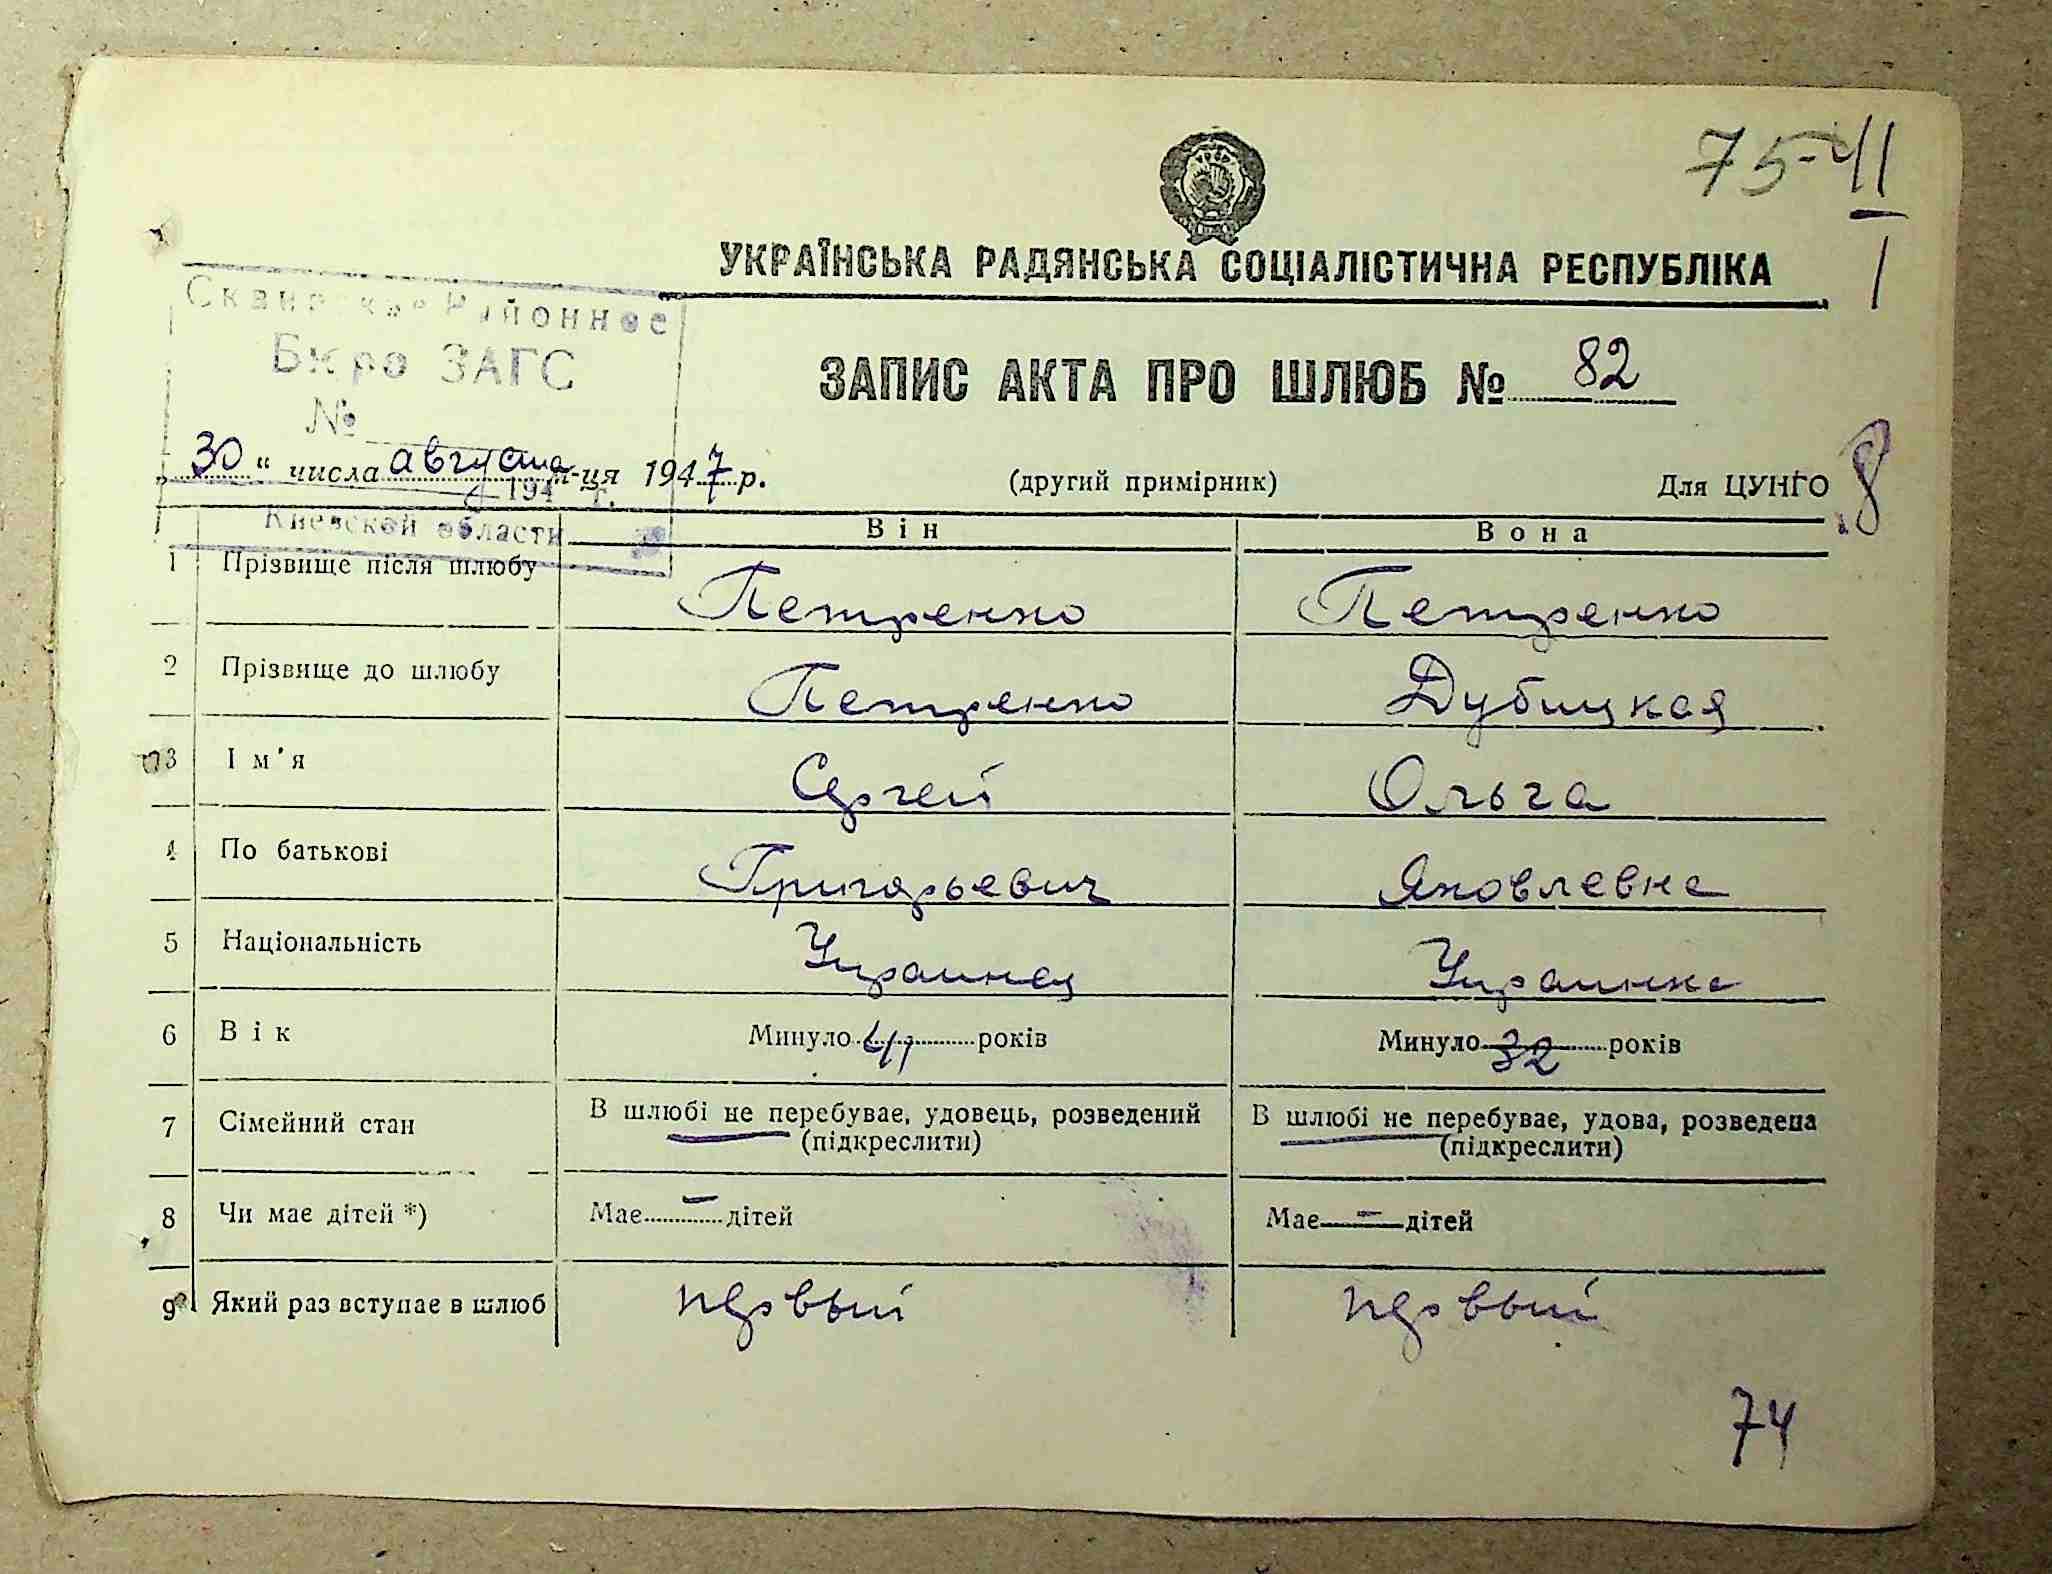 75-41
1
УКРАЇНСЬКА РАДЯНСЬКА СОЦІАЛІСТИЧНА РЕСПУБЛІКА
Сквирское Районное
Бюро ЗАГС
№
194 г.
Киевской области
ЗАПИС АКТА ПРО ШЛЮБ № 82
30 " числа августа м-ця 1947 р.
(другий примірник)
Для ЦУНГО
8
Він Вона
1 Прізвище після шлюбу Петренко Петренко
2 Прізвище до шлюбу Петренко Дубицкая
3 Ім'я Сергей Ольга
4 По батькові Григорьевич Яковлевна
5 Національність Украинец Украинка
6 Вік Минуло 41 років Минуло 32 років
7 Сімейний стан В шлюбі не перебуває, удовець, розведений В шлюбі не перебуває, удова, розведена
(підкреслити) (підкреслити)
8 Чи має дітей *) Має — дітей Має — дітей
9 Який раз вступає в шлюб первый первый
74